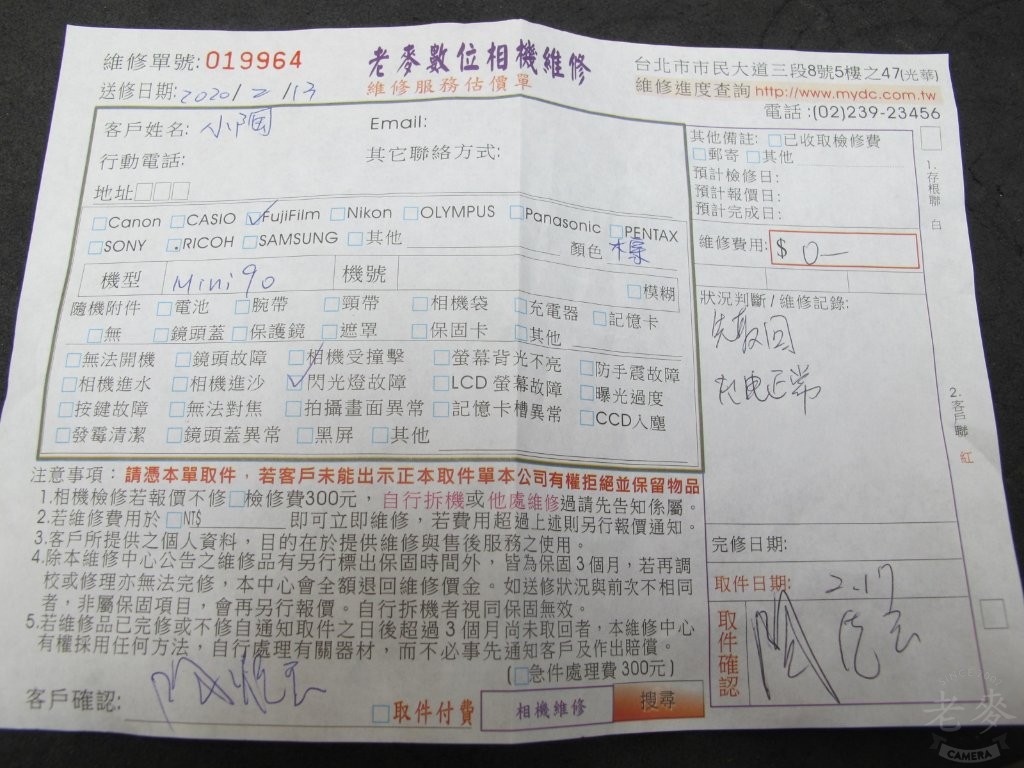 維修單號: 019964
老麥數位相機維修
維修服務估價單
台北市市民大道三段8號5樓之47(光華)
維修進度查詢 http://www.mydc.com.tw
電話:(02)239-23456
送修日期: 2020/2/13
客戶姓名:
Email:
行動電話:
其它聯絡方式:
地址□□□
□Canon □CASIO ☑FujiFilm □Nikon □OLYMPUS □Panasonic □PENTAX
□SONY □RICOH □SAMSUNG □其他 顏色 棕
機型 Mini 90 機號
□模糊
隨機附件 □電池 □腕帶 □頸帶 □相機袋 □充電器 □記憶卡
□無 □鏡頭蓋 □保護鏡 □遮罩 □保固卡 □其他
□無法開機 □鏡頭故障 □相機受撞擊 □螢幕背光不亮 □防手震故障
□相機進水 □相機進沙 ☑閃光燈故障 □LCD 螢幕故障 □曝光過度
□按鍵故障 □無法對焦 □拍攝畫面異常 □記憶卡槽異常 □CCD入塵
□發霉清潔 □鏡頭蓋異常 □黑屏 □其他
其他備註: □已收取檢修費
□郵寄 □其他
預計檢修日:
預計報價日:
預計完成日:
維修費用: $ 0—
狀況判斷/維修記錄:
先取回
充电正常
完修日期:
取件日期: 2.17
取件確認
1.存根聯 白
2.客戶聯 紅
注意事項: 請憑本單取件，若客戶未能出示正本取件單本公司有權拒絕並保留物品
1.相機檢修若報價不修□檢修費300元，自行拆機或他處維修過請先告知係屬。
2.若維修費用於□NT$ 即可立即維修，若費用超過上述則另行報價通知。
3.客戶所提供之個人資料，目的在於提供維修與售後服務之使用。
4.除本維修中心公告之維修品有另行標出保固時間外，皆為保固3個月，若再調
校或修理亦無法完修，本中心會全額退回維修價金。如送修狀況與前次不相同
者，非屬保固項目，會再另行報價。自行拆機者視同保固無效。
5.若維修品已完修或不修自通知取件之日後超過3個月尚未取回者，本維修中心
有權採用任何方法，自行處理有關器材，而不必事先通知客戶及作出賠償。
(□急件處理費300元)
客戶確認:
□取件付費
相機維修 搜尋
老麥
CAMERA